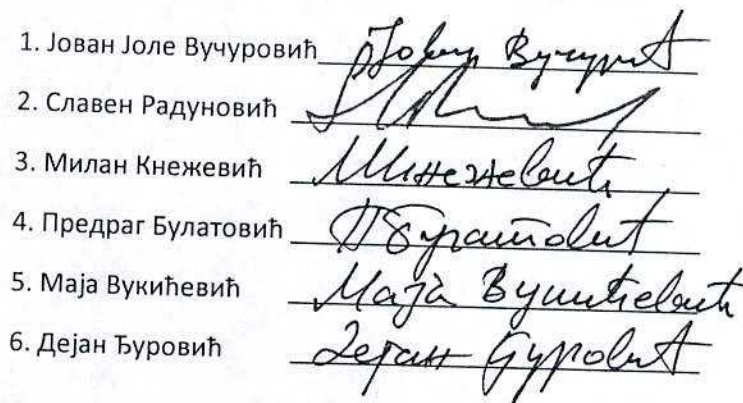 1. Јован Јоле Вучуровић Јован Вучуровић
2. Славен Радуновић
3. Милан Кнежевић МКнежевић
4. Предраг Булатовић ПБулатовић
5. Маја Вукићевић Маја Вукићевић
6. Дејан Ђуровић Дејан Ђуровић